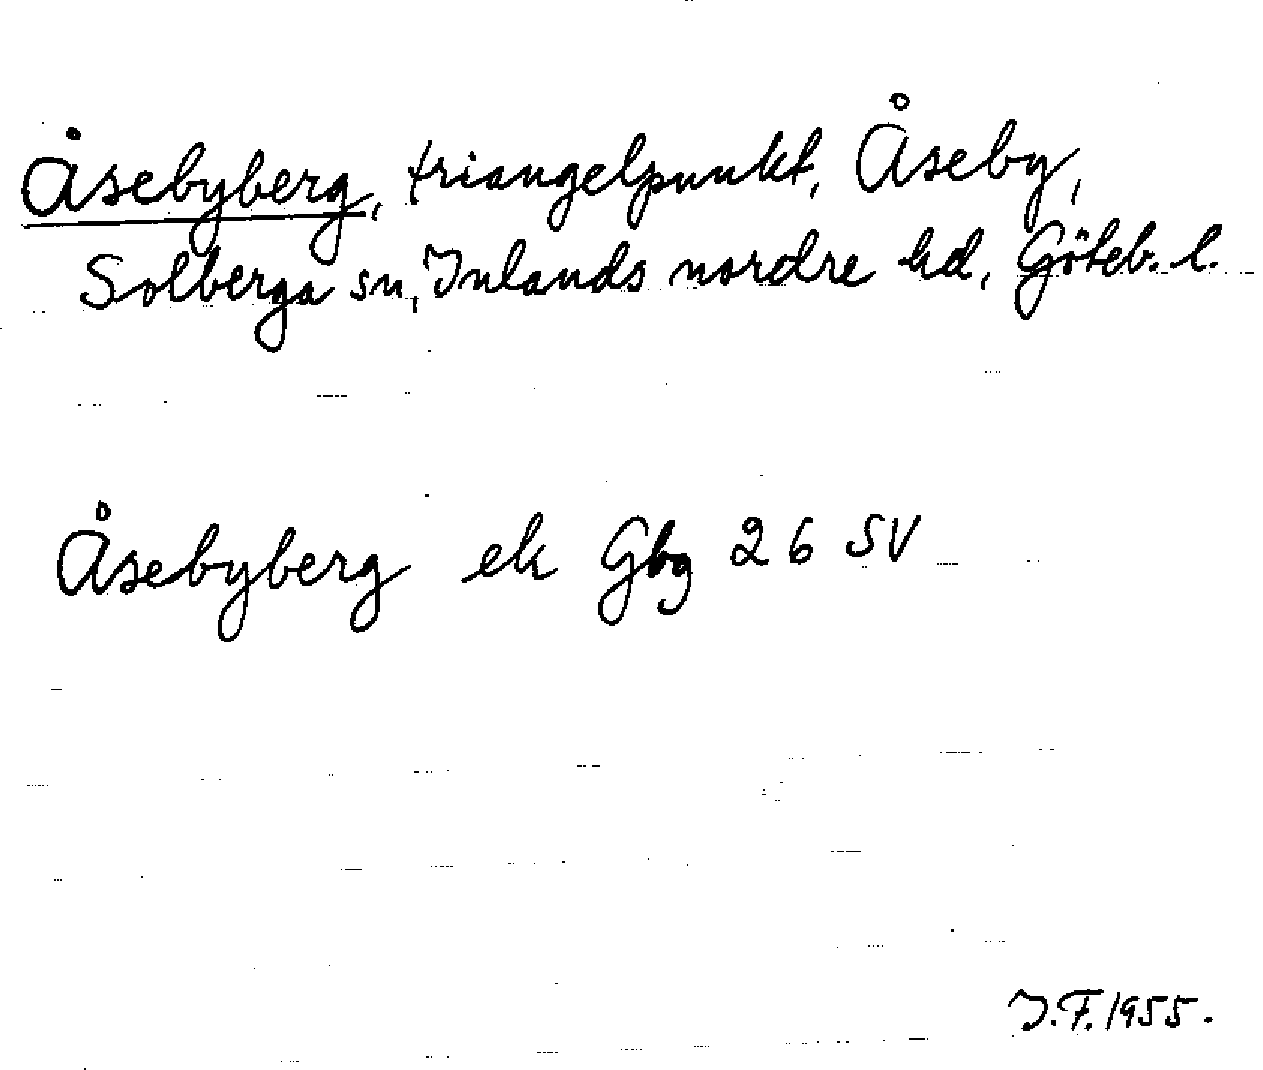 Åsebyberg, triangelpunkt, Åseby,
Solberga sn, Inlands nordre hd, Göteb. l.
Åsebyberg ek Gbg 26 SV
I.F. 1955.